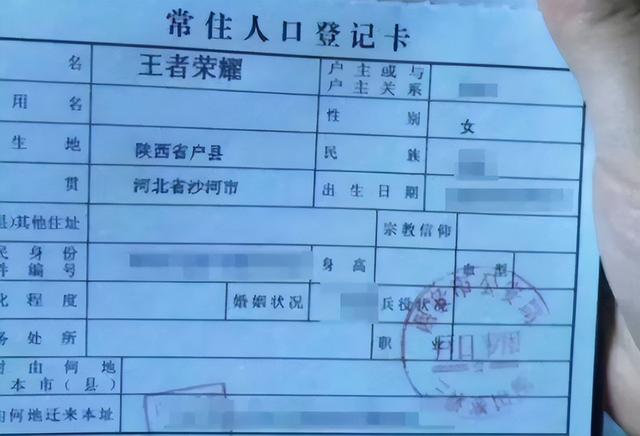 常住人口登记卡
名 王者荣耀 户主或与
户主关系
用名 性别 女
生地 陕西省户县 民族
贯 河北省沙河市 出生日期
县)其他住址 宗教信仰
民身份 身高 血型
件编号
化程度 婚姻状况 兵役状况
务处所 职业
由何地
本市(县)
由何地迁来本址